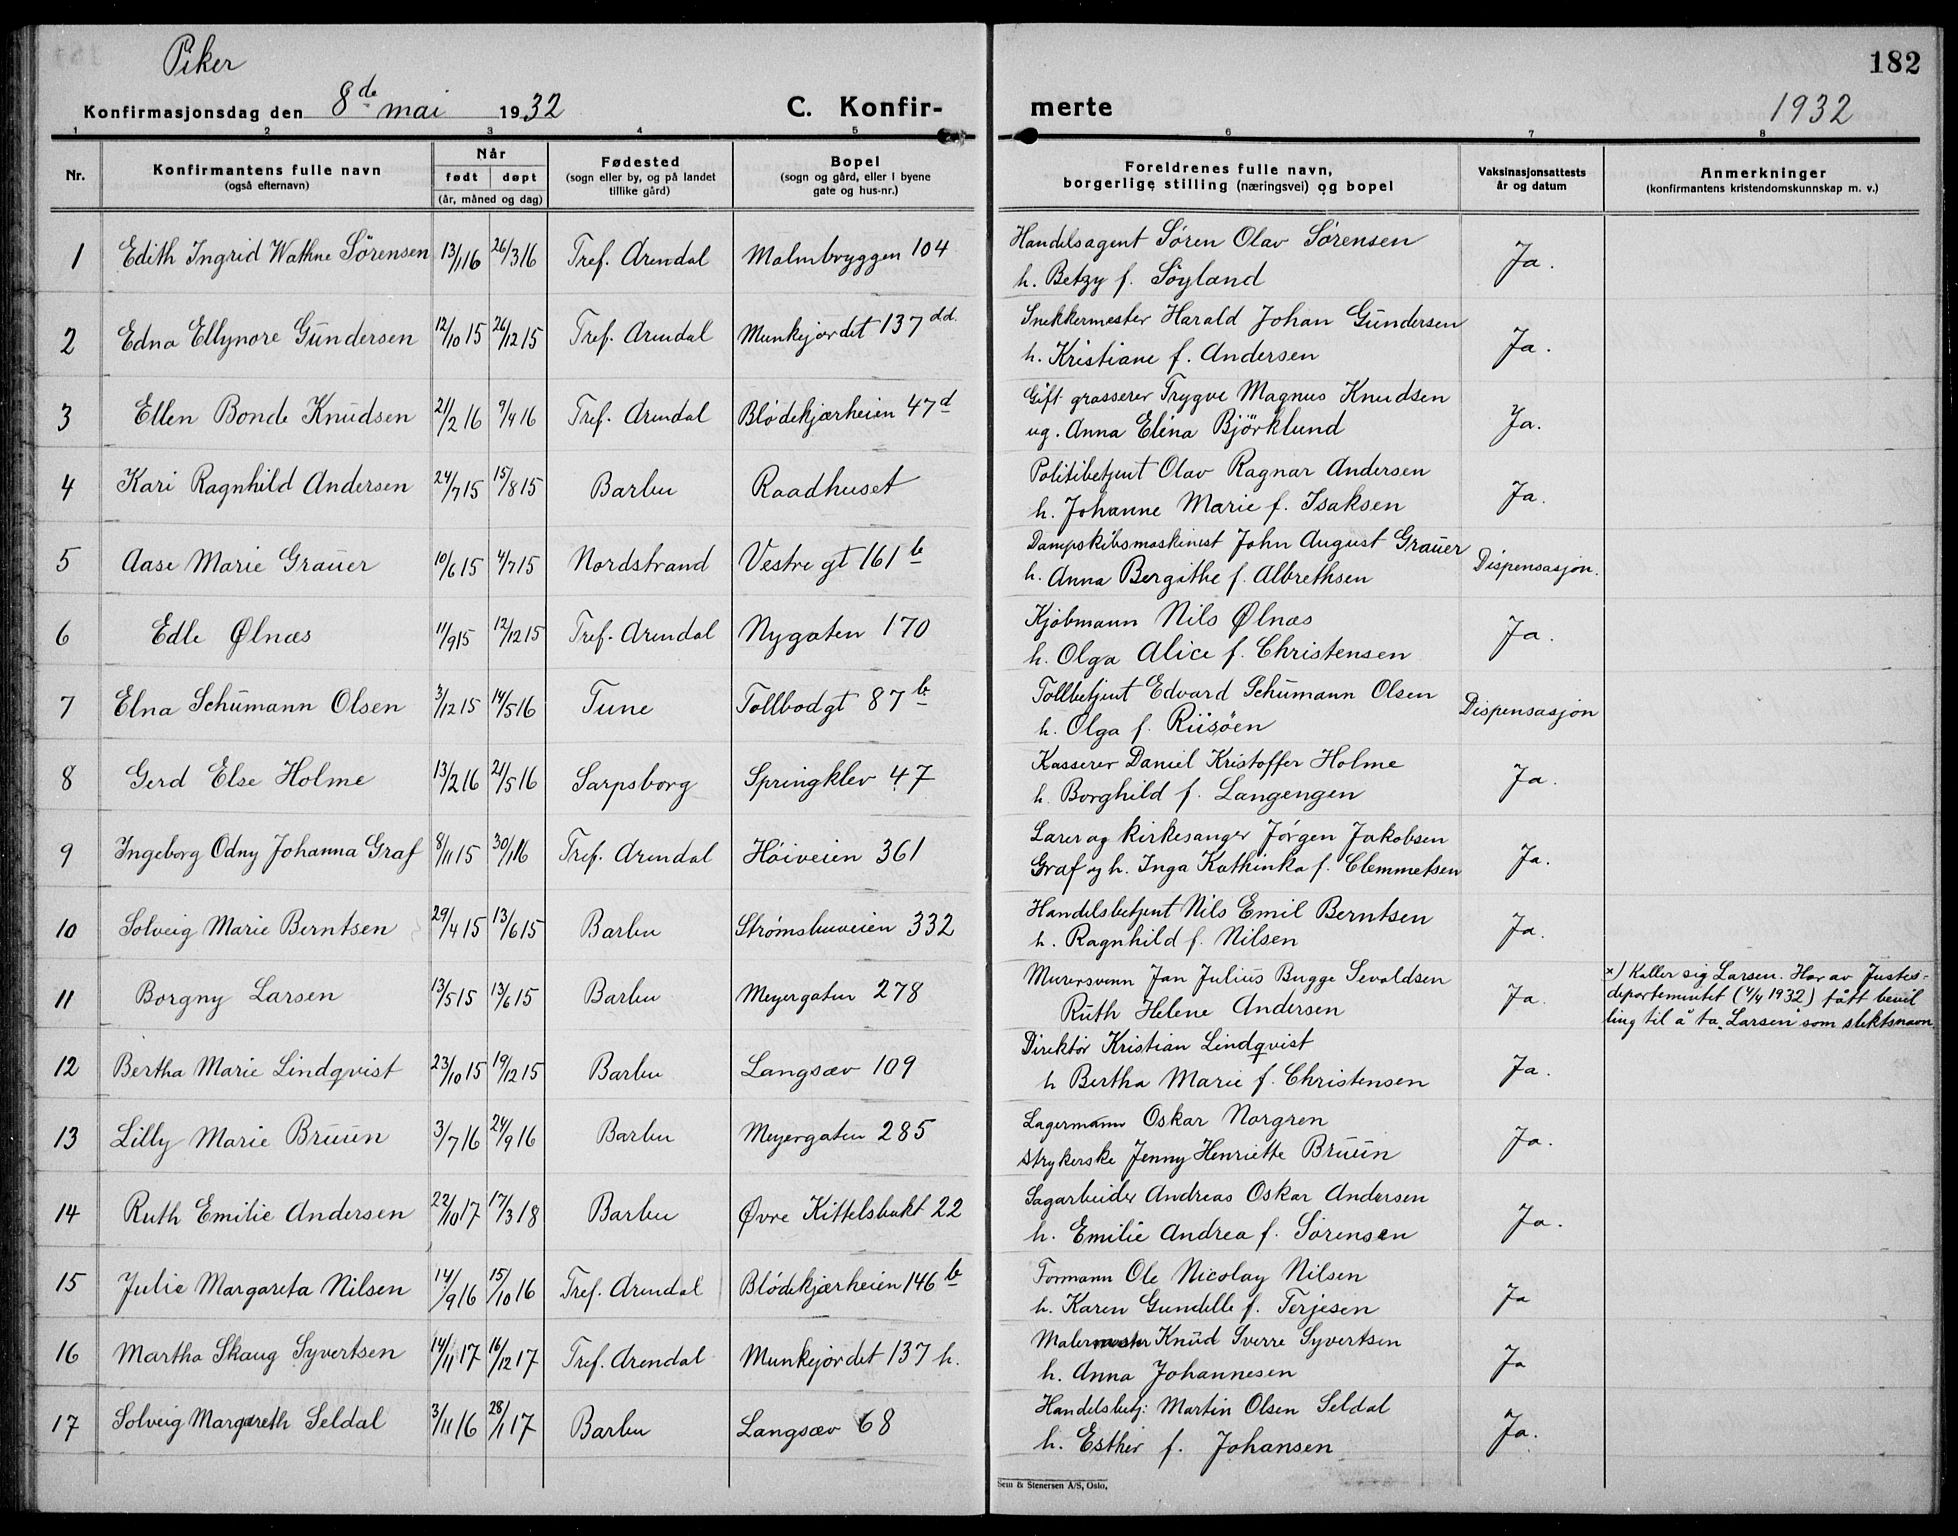 Piker
182
Konfirmasjonsdag den 8de mai 1932
C. Konfir-
merte
1932
1 2 3 4 5 6 7 8
Nr.
Konfirmantens fulle navn
(også efternavn)
Når
født døpt
(år, måned og dag)
Fødested
(sogn eller by, og på landet
tillike gård)
Bopel
(sogn og gård, eller i byene
gate og hus-nr.)
Foreldrenes fulle navn,
borgerlige stilling (næringsvei) og bopel
Vaksinasjonsattests
år og datum
Anmerkninger
(konfirmantens kristendomskunnskap m. v.)
1 Edith Ingrid Wathne Sörensen 13/1 16 26/3 16 Tref. Arendal Malmbryggen 104 Handelsagent Sören Olav Sörensen
h. Betzy f. Söyland Ja.
2 Edna Ellynore Gundersen 12/10 15 26/12 15 Tref. Arendal Munkejordet 137 dd. Snekkermester Harald Johan Gundersen
h. Kristiane f. Andersen Ja.
3 Ellen Bonde Knudsen 21/2 16 9/4 16 Tref. Arendal Blødekjærheien 47d Gift grosserer Trygve Magnus Knudsen
ug. Anna Elina Björklund Ja.
4 Kari Ragnhild Andersen 24/7 15 15/8 15 Barbu Raadhuset Politibetjent Olav Ragnar Andersen
h. Johanne Marie f. Isaksen Ja.
5 Aase Marie Grauer 10/6 15 4/7 15 Nordstrand Vestre gt 161 b Dampskibsmaskinist John August Grauer
h. Anna Bergithe f. Albrethsen Dispensasjon.
6 Edle Ølnas 11/9 15 12/12 15 Tref. Arendal Nygaten 170 Kjøbmann Nils Ølnas
h. Olga Alice f. Christensen Ja.
7 Elna Schumann Olsen 3/12 15 14/5 16 Tune Tollbodgt 87 b Tollbetjent Edvard Schumann Olsen
h. Olga f. Riisöen Dispensasjon
8 Gerd Else Holme 13/2 16 21/5 16 Sarpsborg Springklev 47 Kasserer Daniel Kristoffer Holme
h. Borghild f. Langengen Ja.
9 Ingeborg Odny Johanna Graf 8/11 15 30/1 16 Tref. Arendal Höiveien 361 Lærer og kirkesanger Jörgen Jakobsen
Graf og h. Inga Kathinka f. Clemmetsen Ja.
10 Solveig Marie Berntsen 29/4 15 13/6 15 Barbu Strømsbuveien 332 Handelsbetjent Nils Emil Berntsen
h. Ragnhild f. Nilsen Ja.
11 Borgny Larsen 13/5 15 13/6 15 Barbu Meyergaten 278 Murersvenn Jan Julius Bugge Sevaldsen
Ruth Helene Andersen Ja.
x) Kaller sig Larsen. Har av Justis-
departementet (4/4 1932) fått bevil
ling til å ta "Larsen" som slektsnavn.
12 Bertha Marie Lindqvist 23/10 15 19/12 15 Barbu Langsæv 109 Direktör Kristian Lindqvist
h Bertha Marie f. Christensen Ja.
13 Lilly Marie Bruun 3/7 16 24/9 16 Barbu Meyergaten 285 Lagermann Oskar Norgren
Strykerske Jenny Henriette Bruun Ja.
14 Ruth Emilie Andersen 22/10 17 17/3 18 Barbu Øvre Kittelsbukt 22 Sagarbeider Andreas Oskar Andersen
h. Emilie Andrea f. Sörensen Ja.
15 Julie Margareta Nilsen 14/9 16 15/10 16 Tref. Arendal Blödekjærheien 146 b Formann Ole Nicolay Nilsen
h. Karen Gundelle f. Terjesen Ja
16 Martha Skaug Syvertsen 14/11 17 16/12 17 Tref. Arendal Munkejordet 137 h. Malermester Knud Sverre Syvertsen
h. Anna Johannesen Ja
17 Solveig Margareth Seldal 3/11 16 28/1 17 Barbu Langsæv 68 Handelsbetj: Martin Olsen Seldal
h. Esther f. Johansen Ja.
Sem & Stenersen A/S, Oslo.